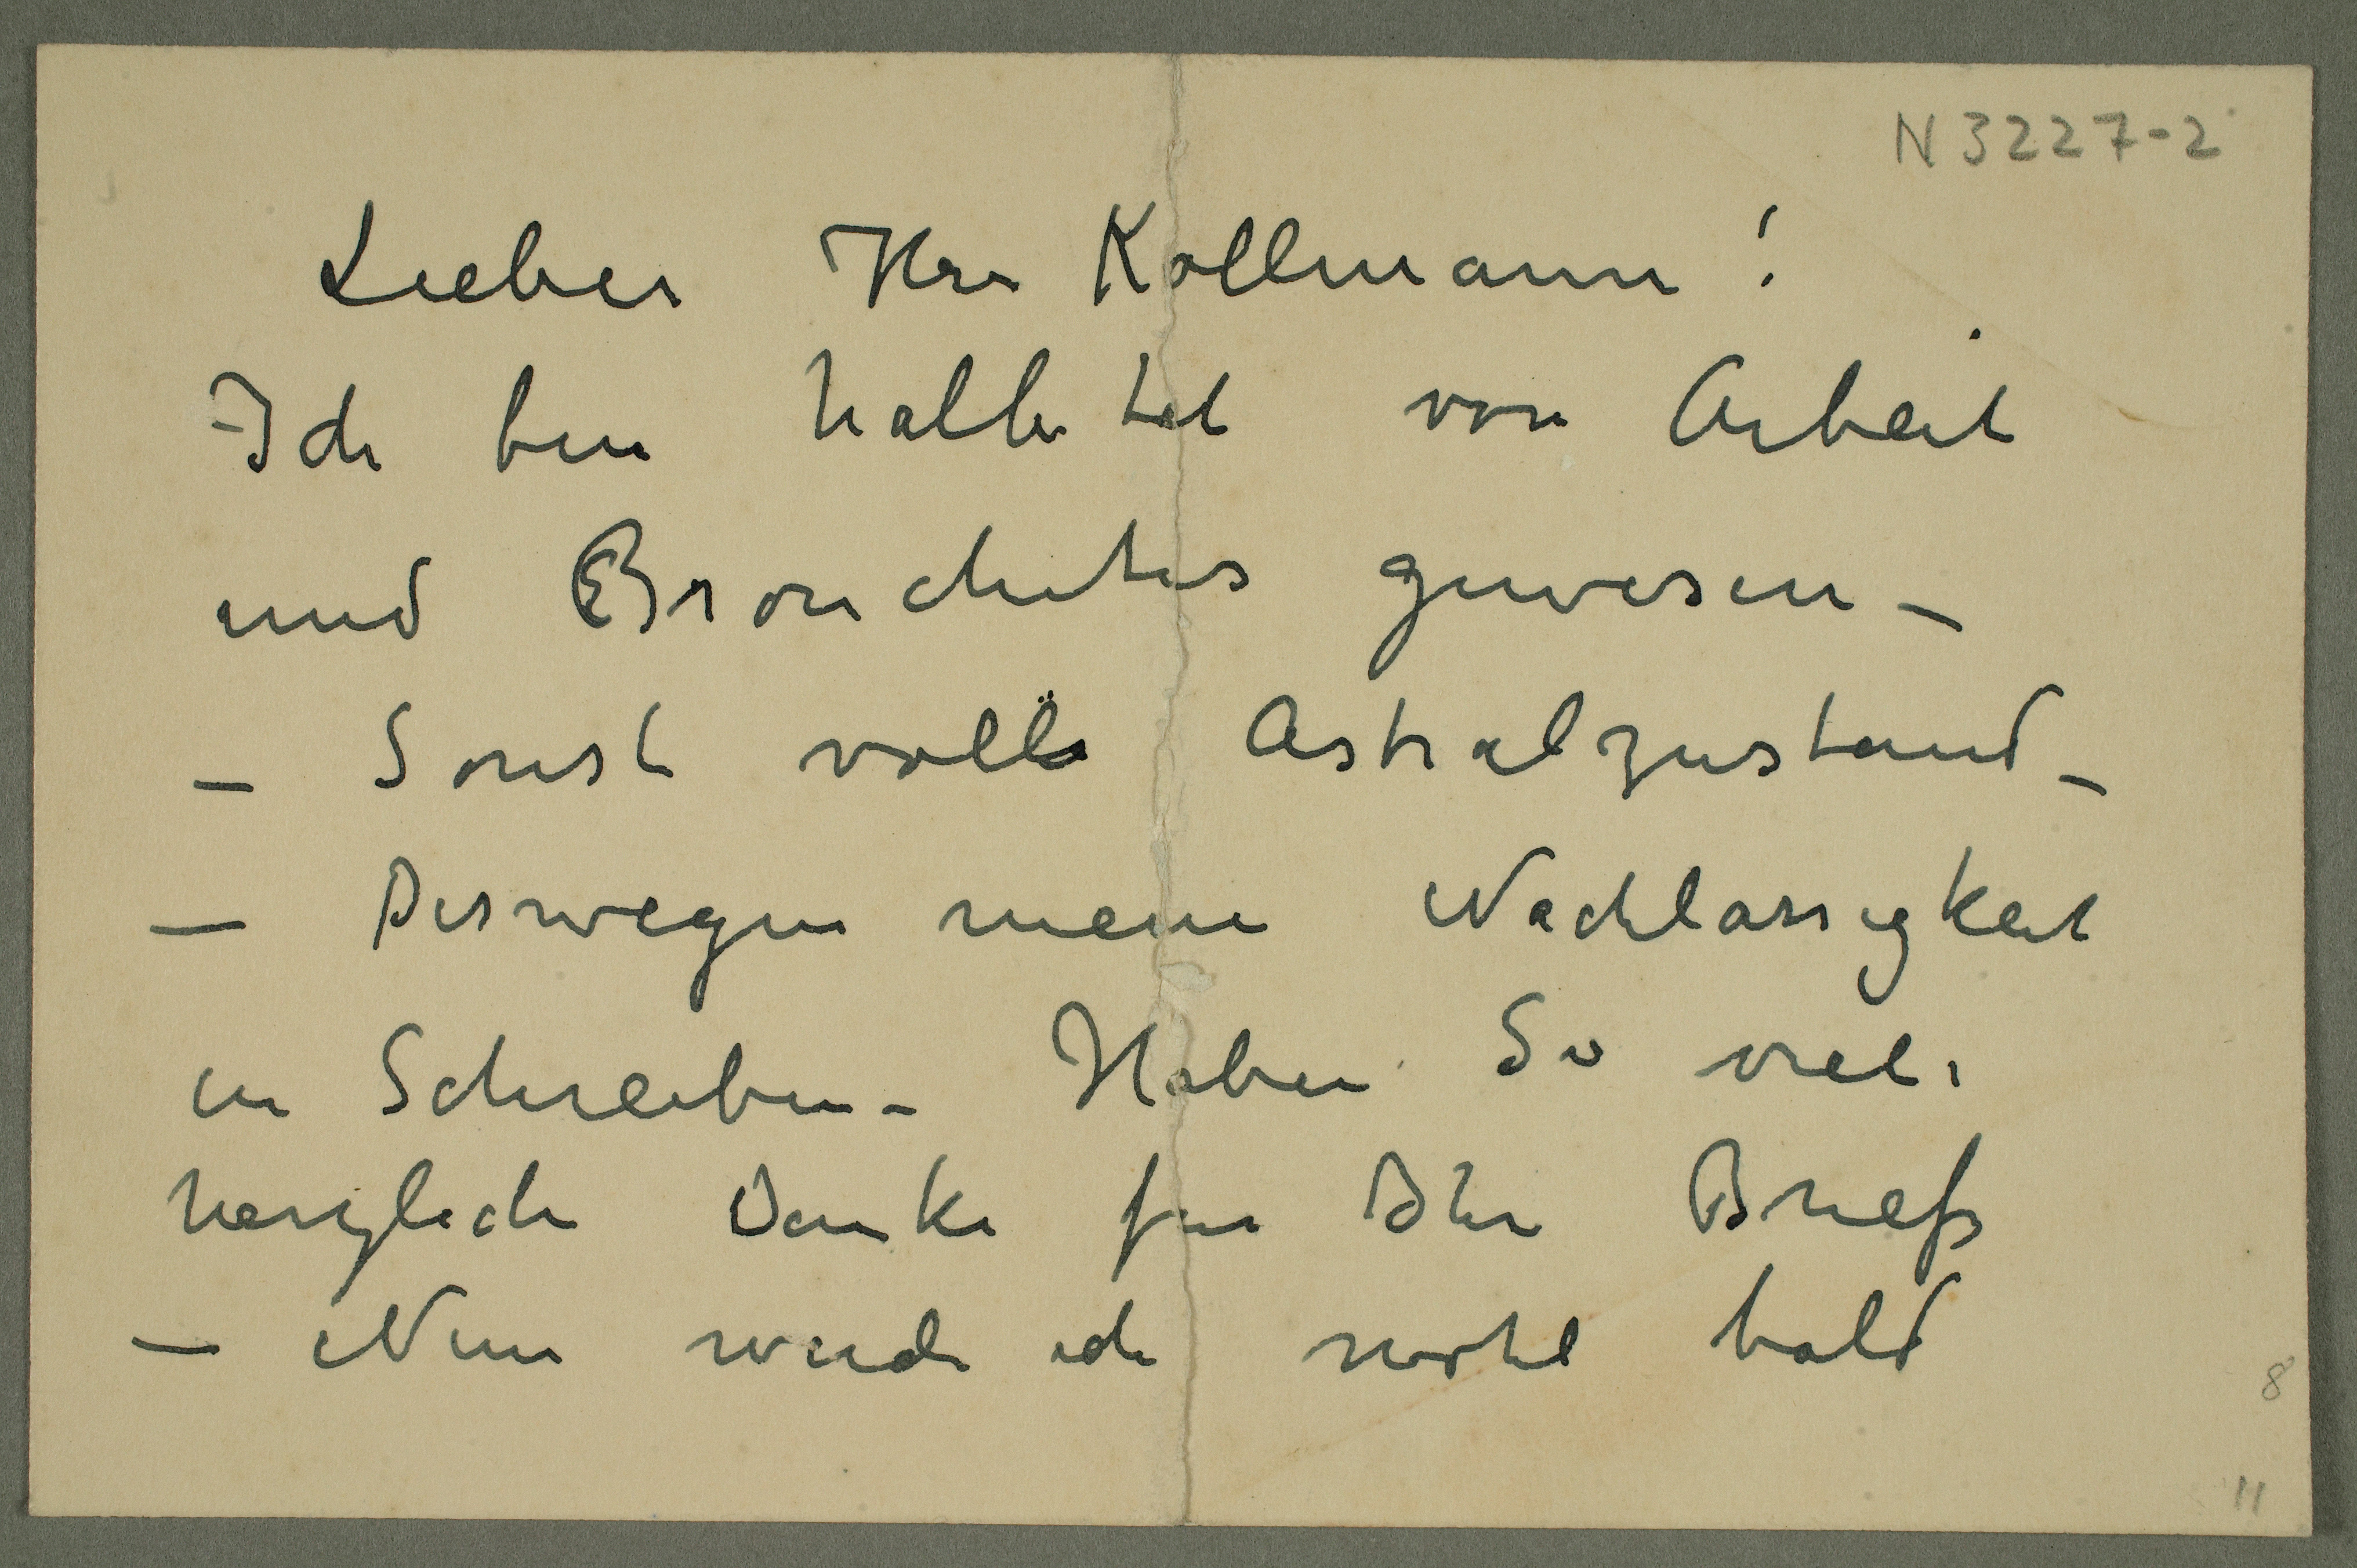 N 3227-2
Lieber Herr Kollmann!
Ich bin halb tot von Arbeit
und Bronchitis gewesen –
– Sonst volle Astralzustand –
– Deswegen meine Nachlassigkeit
in Schreiben – Haben Sie viele
herzliche Danke fur Ihre Briefe
– Nun werde ich wohl bald
8
11